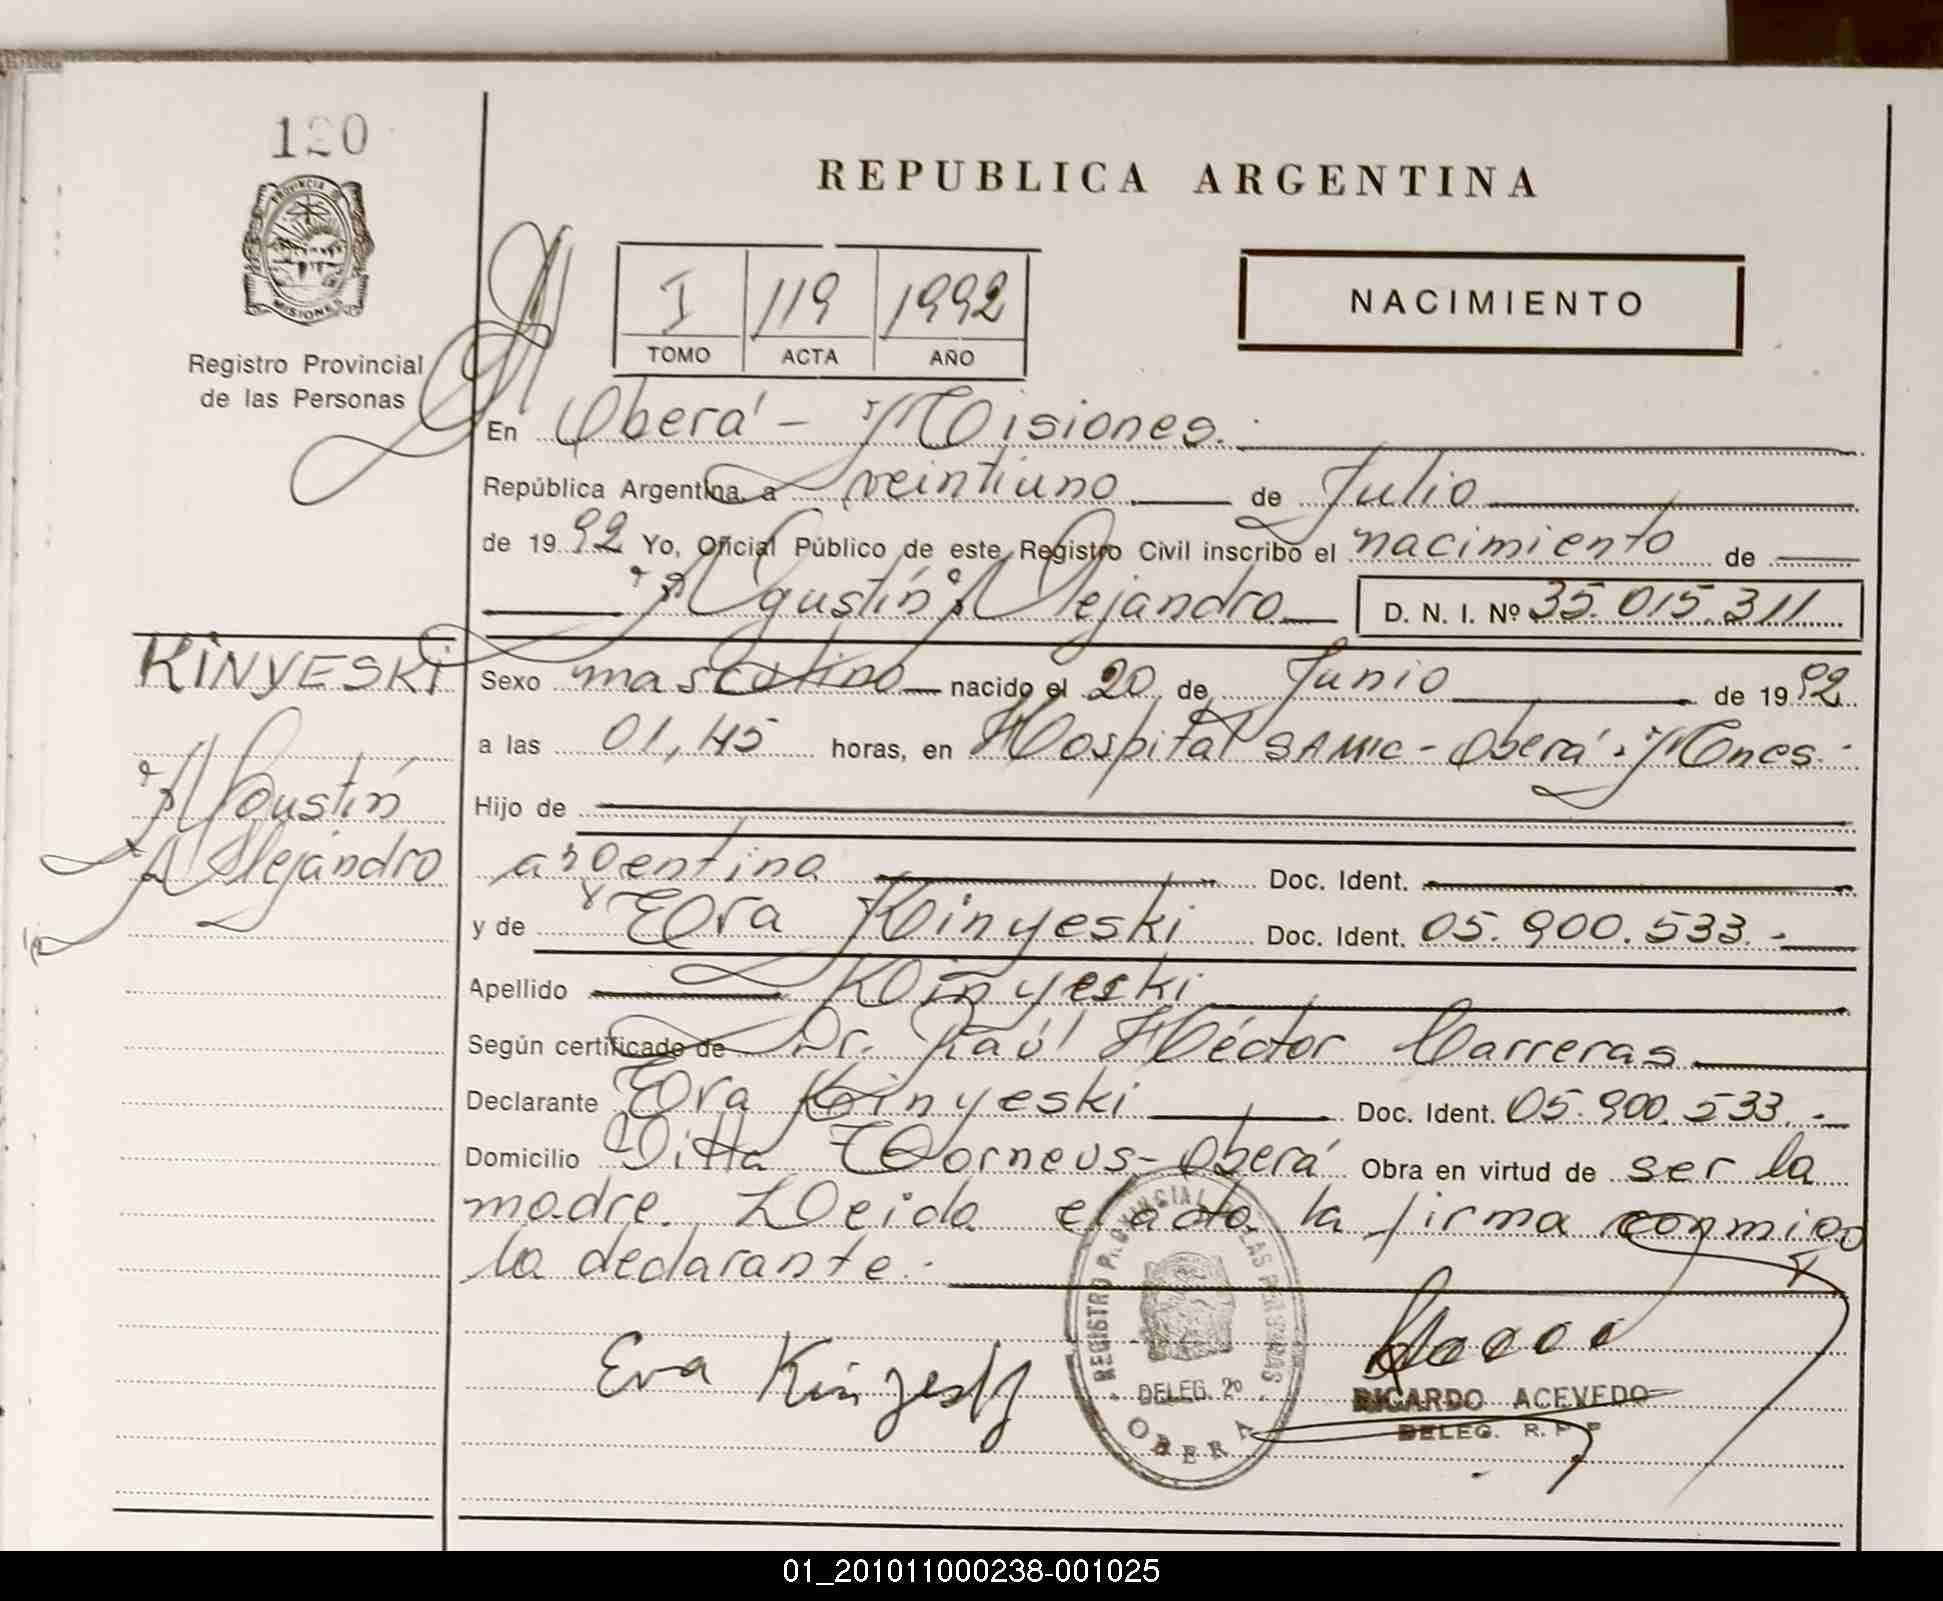 120
PROVINCIA DE
MISIONES
Registro Provincial
de las Personas
REPUBLICA ARGENTINA
I 119 1992
TOMO ACTA AÑO
NACIMIENTO
En Oberá - Misiones.
República Argentina, a veintiuno de Julio
de 1992 Yo, Oficial Público de este Registro Civil inscribo el nacimiento de
Agustín Alejandro D. N. I. Nº 35.015.311
KINYESKI
Agustín
Alejandro
Sexo masculino nacido el 20 de Junio de 1992
a las 01,45 horas, en Hospital SAMIC - Oberá - Mnes.
Hijo de
argentina Doc. Ident.
y de Eva Kinyeski Doc. Ident. 05.900.533.-
Apellido Kinyeski
Según certificado de Dr. Raúl Héctor Carreras
Declarante Eva Kinyeski Doc. Ident. 05.900.533.-
Domicilio Villa Oberá Obra en virtud de ser la
madre. Leida el acta la firma conmigo
la declarante.-
Eva Kinyeski
REGISTRO PROVINCIAL DE LAS PERSONAS
DELEG. 2º
OBERA
RICARDO ACEVEDO
DELEG. R. P. P.
01_201011000238-001025